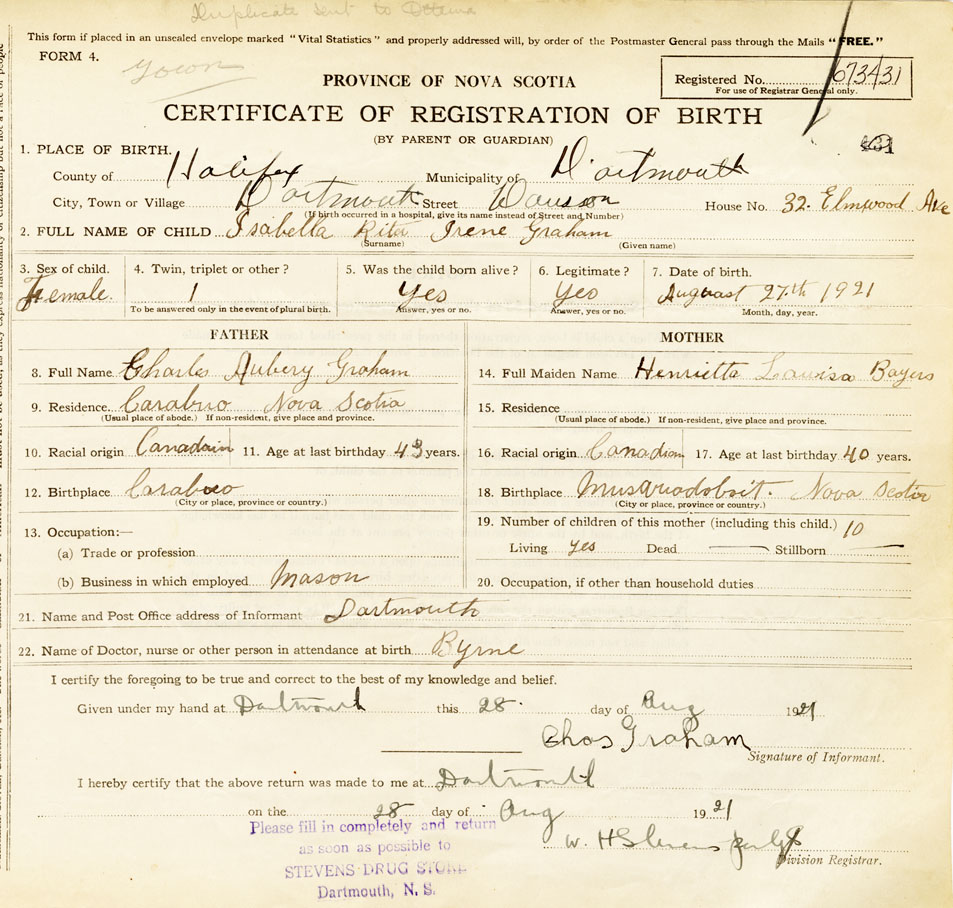 Duplicate sent to Ottawa
This form if placed in an unsealed envelope marked "Vital Statistics" and properly addressed will, by order of the Postmaster General pass through the Mails "FREE."
FORM 4.
Town
PROVINCE OF NOVA SCOTIA
Registered No. 673431
For use of Registrar General only.
CERTIFICATE OF REGISTRATION OF BIRTH
(BY PARENT OR GUARDIAN)
1. PLACE OF BIRTH.
County of Halifax Municipality of Dartmouth
City, Town or Village Dartmouth Street Dawson House No. 32 Elmwood Ave
(If birth occurred in a hospital, give its name instead of Street and Number)
2. FULL NAME OF CHILD Isabella Rita Irene Graham
(Surname) (Given name)
3. Sex of child. 4. Twin, triplet or other? 5. Was the child born alive? 6. Legitimate? 7. Date of birth.
Female. 1 Yes Yes Auguast 27th 1921
To be answered only in the event of plural birth. Answer, yes or no. Answer, yes or no. Month, day, year.
FATHER MOTHER
8. Full Name Charles Aubery Graham 14. Full Maiden Name Henrietta Lauisa Bayers
9. Residence. Carabuo Nova Scotia 15. Residence
(Usual place of abode.) If non-resident, give place and province. (Usual place of abode.) If non-resident, give place and province.
10. Racial origin Canadain 11. Age at last birthday 43 years. 16. Racial origin Canadian 17. Age at last birthday 40 years.
12. Birthplace Carabuo 18. Birthplace Nova Scotia
(City or place, province or country.) (City or place, province or country.)
13. Occupation:— 19. Number of children of this mother (including this child.) 10
(a) Trade or profession Living yes Dead — Stillborn —
(b) Business in which employed Mason 20. Occupation, if other than household duties
21. Name and Post Office address of Informant Dartmouth
22. Name of Doctor, nurse or other person in attendance at birth Byrne
I certify the foregoing to be true and correct to the best of my knowledge and belief.
Given under my hand at Dartmouth this 28. day of Aug 1921
Chas Graham
Signature of Informant.
I hereby certify that the above return was made to me at Dartmouth
on the 28 day of Aug 1921
Please fill in completely and return
as soon as possible to
STEVENS DRUG STORE
Dartmouth, N. S.
W. H Stevens
Division Registrar.